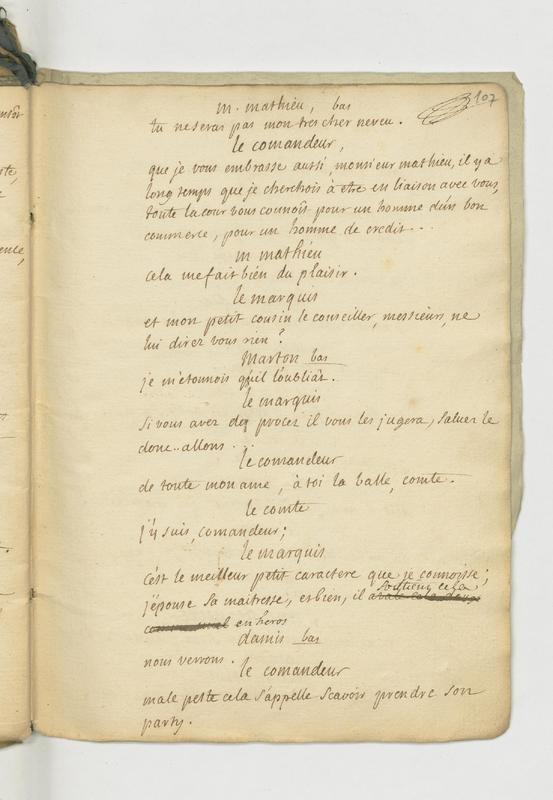 107
m. mathieu, bas
tu ne seras pas mon tres cher neveu.
le comandeur,
que je vous embrasse aussi, monsieur mathieu, il y a
long temps que je cherchois à etre en liaison avec vous,
toute la cour vous connoît pour un homme d'un bon
commerce, pour un homme de credit...
m mathieu
cela me fait bien du plaisir.
le marquis
et mon petit cousin le conseiller, messieurs, ne
lui direz vous rien ?
Marton bas
je m'etonnois qu'il l'oubliât.
le marquis
si vous avez des procez il vous les jugera, saluez le
donc.. allons...
le comandeur
de toute mon ame, à toi la balle, comte.
le comte
j'y suis, comandeur;
le marquis
c'est le meilleur petit caractere que je connoisse;
soutient cela
j'épouse sa maitresse, et bien, il
en heros
damis bas
nous verrons.
le comandeur
male peste cela s'appelle scavoir prendre son
party.